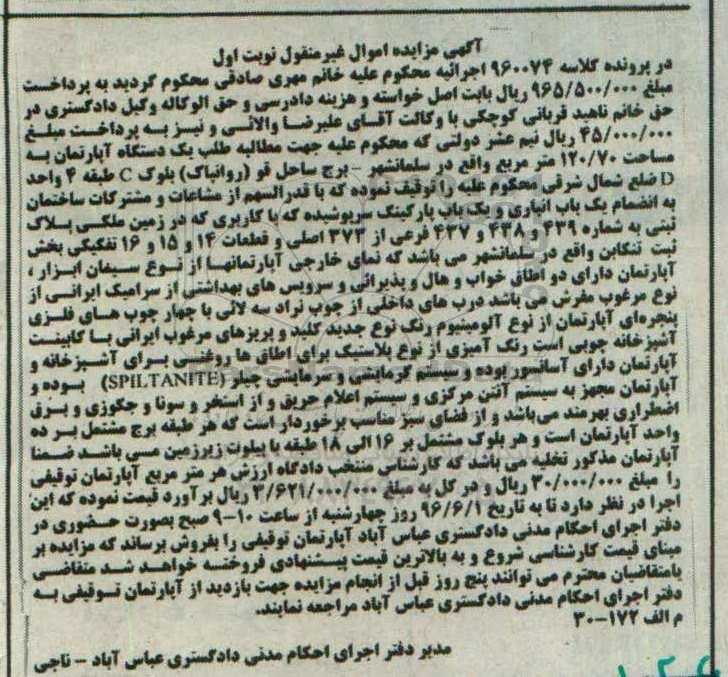 آگهی مزایده اموال غیرمنقول نوبت اول
در پرونده کلاسه ۹۶۰۰۷۴ اجرائیه محکوم علیه خانم مهری صادقی محکوم گردید به پرداخت
مبلغ ۹۶۵/۵۰۰/۰۰۰ ریال بابت اصل خواسته و هزینه دادرسی و حق الوکاله وکیل دادگستری در
حق خانم ناهید قربانی کوچکی با وکالت آقای علیرضا والائی و نیز به پرداخت مبلغ
۴۵/۰۰۰/۰۰۰ ریال نیم عشر دولتی که محکوم علیه جهت مطالبه طلب یک دستگاه آپارتمان به
مساحت ۱۲۰/۷۰ متر مربع واقع در سلمانشهر - برج ساحل قو (روانپاک) بلوک C طبقه ۴ واحد
D ضلع شمال شرقی محکوم علیه را توقیف نموده که با قدرالسهم از مشاعات و مشترکات ساختمان
به انضمام یک باب انباری و یک باب پارکینگ سرپوشیده که با کاربری که در زمین ملکی پلاک
ثبتی به شماره ۴۳۹ و ۴۳۸ و ۴۳۷ فرعی از ۳۷۳ اصلی و قطعات ۱۴ و ۱۵ و ۱۶ تفکیکی بخش
ثبت تنکابن واقع در سلمانشهر می باشد که نمای خارجی آپارتمانها از نوع سیمان ابزار ،
آپارتمان دارای دو اطاق خواب و هال و پذیرائی و سرویس های بهداشتی از سرامیک ایرانی از
نوع مرغوب مفرش می باشد درب های داخلی از چوب نراد سه لائی با چهار چوب های فلزی
پنجره‌ای آپارتمان از نوع آلومینیوم رنگ نوع جدید کلید و پریزهای مرغوب ایرانی با کابینت
آشپزخانه چوبی است رنگ آمیزی از نوع پلاستیک برای اطاق ها روغنی برای آشپزخانه و
آپارتمان دارای آسانسور بوده و سیستم گرمایشی و سرمایشی چیلر (SPILTANITE) بوده و
آپارتمان مجهز به سیستم آنتن مرکزی و سیستم اعلام حریق و از استخر و سونا و جکوزی و برق
اضطراری بهرمند می‌باشد و از فضای سبز مناسب برخوردار است که هر طبقه برج مشتمل بر ده
واحد آپارتمان است و هر بلوک مشتمل بر ۱۶ الی ۱۸ طبقه با پیلوت زیرزمین می باشد ضمنا
آپارتمان مذکور تخلیه می باشد که کارشناسی منتخب دادگاه ارزش هر متر مربع آپارتمان توقیفی
را مبلغ ۳۰/۰۰۰/۰۰۰ ریال و در کل به مبلغ ۳/۶۲۱/۰۰۰/۰۰۰ ریال برآورد قیمت نموده که این
اجرا در نظر دارد تا به تاریخ ۹۶/۶/۱ روز چهارشنبه از ساعت ۱۰-۹ صبح بصورت حضوری در
دفتر اجرای احکام مدنی دادگستری عباس آباد آپارتمان توقیفی را بفروش برساند که مزایده بر
مبنای قیمت کارشناسی شروع و به بالاترین قیمت پیشنهادی فروخته خواهد شد متقاضی
یامتقاضیان محترم می توانند پنج روز قبل از انجام مزایده جهت بازدید از آپارتمان توقیفی به
دفتر اجرای احکام مدنی دادگستری عباس آباد مراجعه نمایند.
م الف ۱۷۲-۳۰
مدیر دفتر اجرای احکام مدنی دادگستری عباس آباد - ناجی